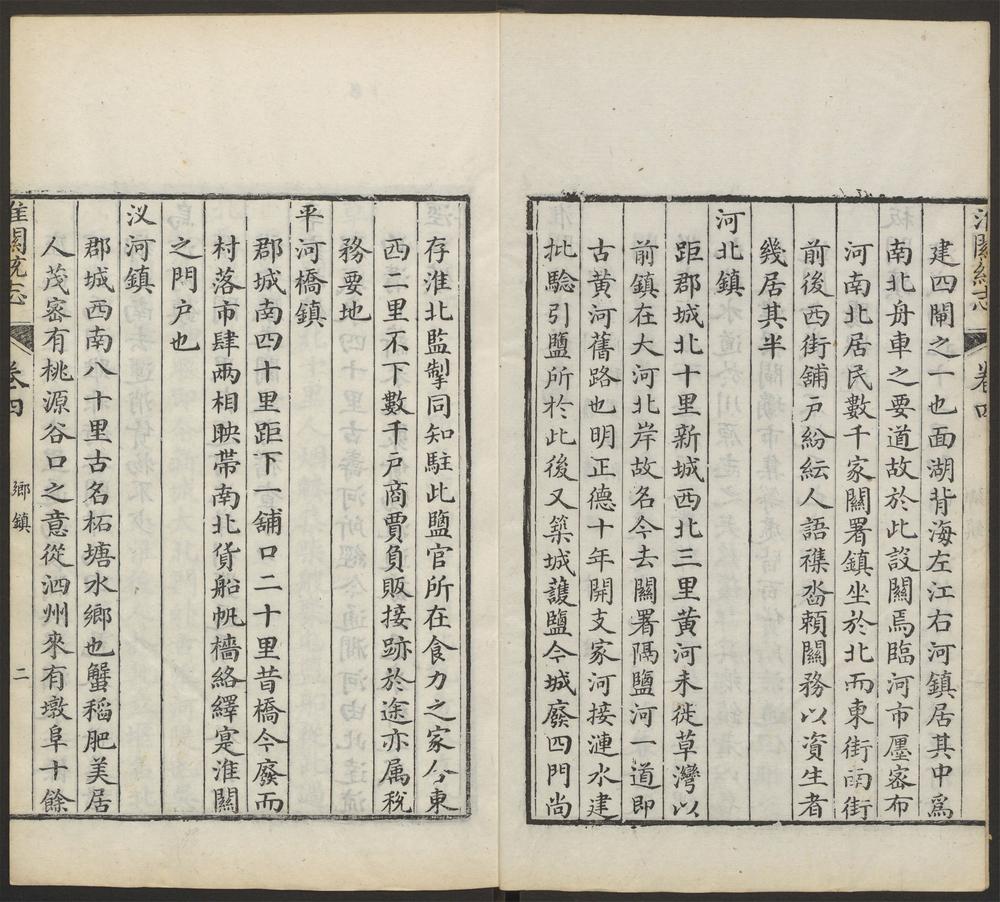 淮關統志
卷四
建四閘之一也面湖背海左江右河鎮居其中爲
南北舟車之要道故於此設關焉臨河市廛密布
河南北居民數千家關署鎮坐於北而東街南街
前後西街舖戸紛紜人語襍沓賴關務以資生者
幾居其半
河北鎮
距郡城北十里新城西北三里黄河未徙草灣以
前鎮在大河北岸故名今去關署隔鹽河一道即
古黄河舊路也明正德十年開支家河接漣水建
批驗引鹽所於此後又築城護鹽今城廢四門尚
存淮北監掣同知駐此鹽官所在食力之家今東
西二里不下數千戸商賈負販接跡於途亦属稅
務要地
平河橋鎮
郡城南四十里距下一舖口二十里昔橋今廢而
村落市肆兩相映帶南北貨船帆檣絡繹寔淮關
之門户也
汊河鎮
郡城西南八十里古名柘塘水鄉也蟹稻肥美居
人茂密有桃源谷口之意從泗州來有墩阜十餘
淮關統志
卷四
鄉鎮
二